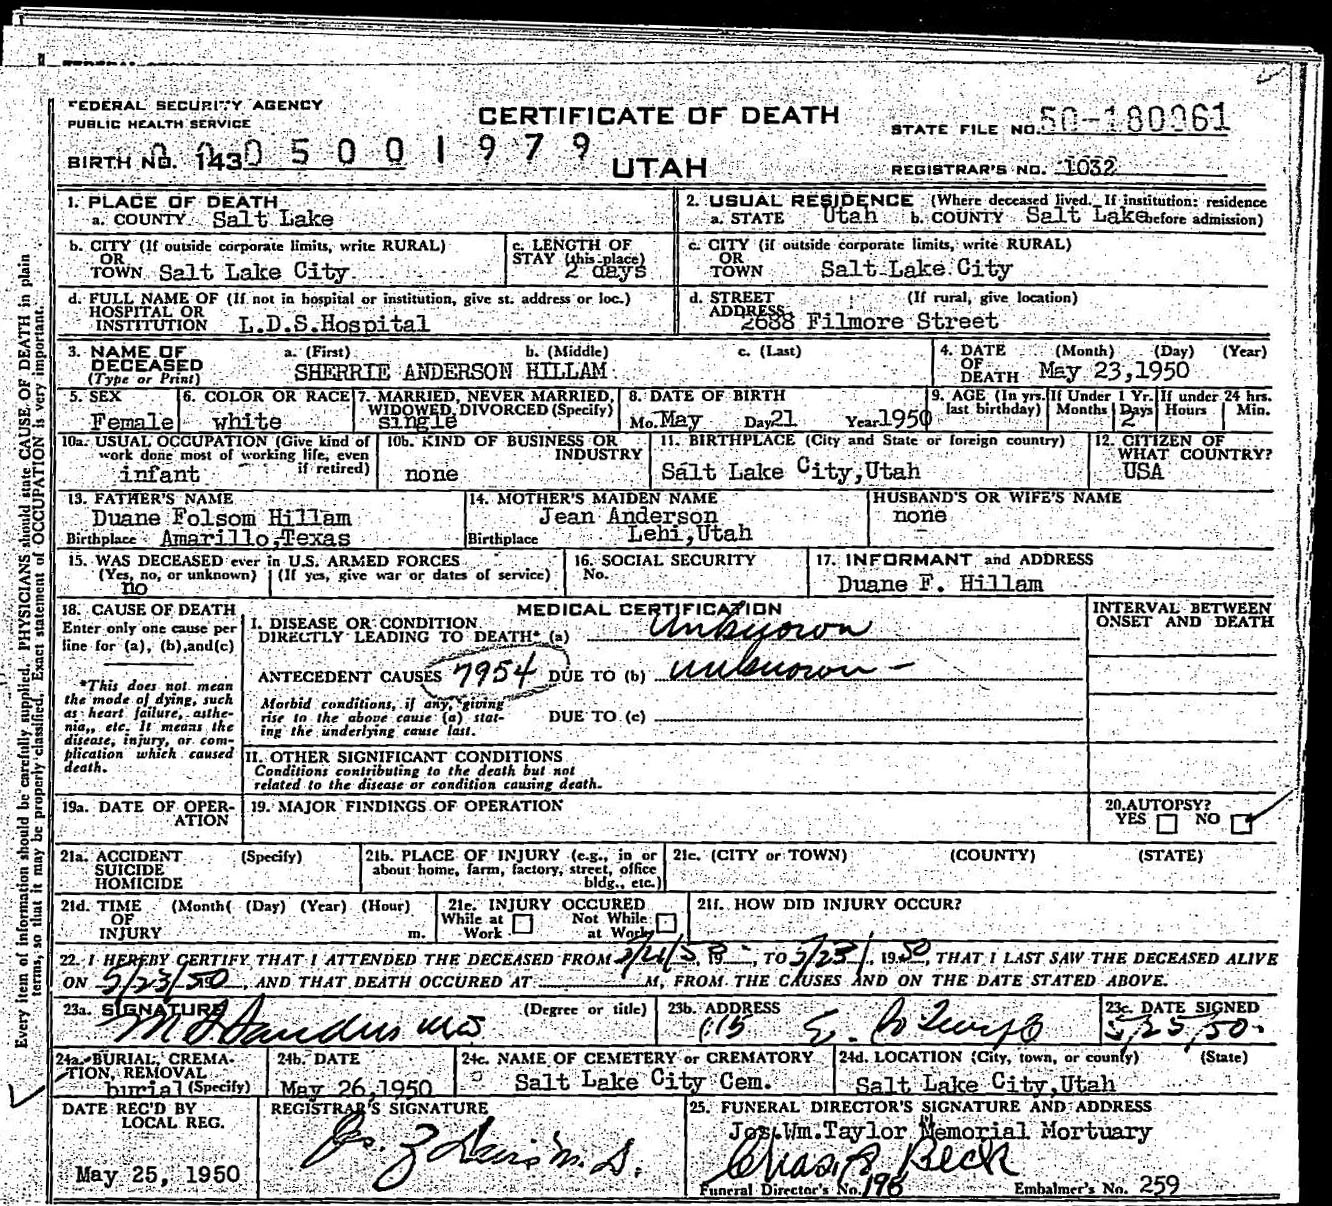 FEDERAL SECURITY AGENCY
PUBLIC HEALTH SERVICE
CERTIFICATE OF DEATH
STATE FILE NO. 50-180061
BIRTH NO. 143 05001979
UTAH
REGISTRAR'S NO. 1032
1. PLACE OF DEATH
a. COUNTY Salt Lake
2. USUAL RESIDENCE (Where deceased lived. If institution: residence before admission)
a. STATE Utah b. COUNTY Salt Lake
b. CITY (If outside corporate limits, write RURAL)
OR
TOWN Salt Lake City
c. LENGTH OF
STAY (this place)
2 days
c. CITY (if outside corporate limits, write RURAL)
OR
TOWN Salt Lake City
d. FULL NAME OF (If not in hospital or institution, give st. address or loc.)
HOSPITAL OR
INSTITUTION L.D.S.Hospital
d. STREET (If rural, give location)
ADDRESS
2688 Filmore Street
3. NAME OF
DECEASED
(Type or Print)
a. (First) b. (Middle) c. (Last)
SHERRIE ANDERSON HILLAM
4. DATE (Month) (Day) (Year)
OF
DEATH May 23,1950
5. SEX
Female
6. COLOR OR RACE
white
7. MARRIED, NEVER MARRIED,
WIDOWED, DIVORCED (Specify)
single
8. DATE OF BIRTH
Mo. May Day 21 Year 1950
9. AGE (In yrs. last birthday)
If Under 1 Yr.
Months Days
2
If under 24 hrs.
Hours Min.
10a. USUAL OCCUPATION (Give kind of
work done most of working life, even
if retired)
infant
10b. KIND OF BUSINESS OR
INDUSTRY
none
11. BIRTHPLACE (City and State or foreign country)
Salt Lake City,Utah
12. CITIZEN OF
WHAT COUNTRY?
USA
13. FATHER'S NAME
Duane Folsom Hillam
Birthplace Amarillo,Texas
14. MOTHER'S MAIDEN NAME
Jean Anderson
Birthplace Lehi,Utah
HUSBAND'S OR WIFE'S NAME
none
15. WAS DECEASED ever in U.S. ARMED FORCES
(Yes, no, or unknown) (If yes, give war or dates of service)
no
16. SOCIAL SECURITY
No.
17. INFORMANT and ADDRESS
Duane F. Hillam
18. CAUSE OF DEATH
Enter only one cause per
line for (a), (b),and(c)
*This does not mean
the mode of dying, such
as heart failure, asthe-
nia,, etc. It means the
disease, injury, or com-
plication which caused
death.
MEDICAL CERTIFICATION
I. DISEASE OR CONDITION
DIRECTLY LEADING TO DEATH* (a) Unknown
ANTECEDENT CAUSES 7954 DUE TO (b) unknown -
Morbid conditions, if any, giving
rise to the above cause (a) stat-
ing the underlying cause last.
DUE TO (c)
II. OTHER SIGNIFICANT CONDITIONS
Conditions contributing to the death but not
related to the disease or condition causing death.
INTERVAL BETWEEN
ONSET AND DEATH
19a. DATE OF OPER-
ATION
19. MAJOR FINDINGS OF OPERATION
20. AUTOPSY?
YES NO
21a. ACCIDENT (Specify)
SUICIDE
HOMICIDE
21b. PLACE OF INJURY (e.g., in or
about home, farm, factory, street, office
bldg., etc.)
21c. (CITY or TOWN) (COUNTY) (STATE)
21d. TIME (Month( (Day) (Year) (Hour)
OF
INJURY m.
21e. INJURY OCCURED
While at Work Not While at Work
21f. HOW DID INJURY OCCUR?
22. I HEREBY CERTIFY THAT I ATTENDED THE DECEASED FROM 5/21/50, 19 , TO 5/23/, 1950, THAT I LAST SAW THE DECEASED ALIVE
ON 5/23/50, AND THAT DEATH OCCURED AT M, FROM THE CAUSES AND ON THE DATE STATED ABOVE.
23a. SIGNATURE (Degree or title)
23b. ADDRESS
115 E.
23c. DATE SIGNED
5/25/50
24a. BURIAL, CREMA-
TION, REMOVAL
burial (Specify)
24b. DATE
May 26,1950
24c. NAME OF CEMETERY or CREMATORY
Salt Lake City Cem.
24d. LOCATION (City, town, or county) (State)
Salt Lake City,Utah
DATE REC'D BY
LOCAL REG.
May 25, 1950
REGISTRAR'S SIGNATURE
25. FUNERAL DIRECTOR'S SIGNATURE AND ADDRESS
Jos.Wm.Taylor Memorial Mortuary
Chas. R Beck
Funeral Director's No. 196 Embalmer's No. 259
Every item of information should be carefully supplied. PHYSICIANS should state CAUSE OF DEATH in plain
terms, so that it may be properly classified. Exact statement of OCCUPATION is very important.